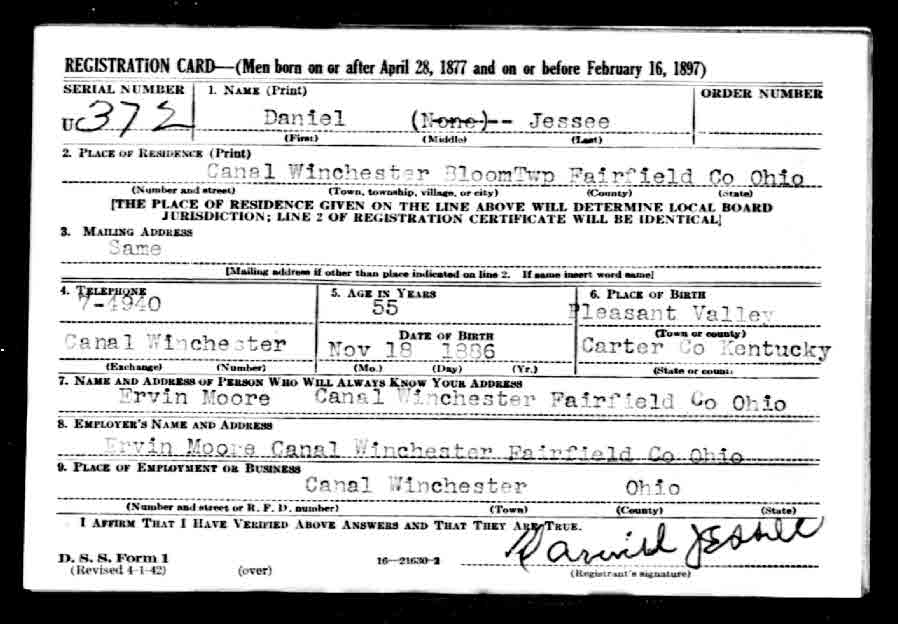 REGISTRATION CARD—(Men born on or after April 28, 1877 and on or before February 16, 1897)
SERIAL NUMBER 1. NAME (Print) ORDER NUMBER
U 372 Daniel (None)-- Jessee
(First) (Middle) (Last)
2. PLACE OF RESIDENCE (Print)
Canal Winchester BloomTwp Fairfield Co Ohio
(Number and street) (Town, township, village, or city) (County) (State)
[THE PLACE OF RESIDENCE GIVEN ON THE LINE ABOVE WILL DETERMINE LOCAL BOARD
JURISDICTION; LINE 2 OF REGISTRATION CERTIFICATE WILL BE IDENTICAL]
3. MAILING ADDRESS
Same
[Mailing address if other than place indicated on line 2. If same insert word same]
4. TELEPHONE 5. AGE IN YEARS 6. PLACE OF BIRTH
7-4940 55 Pleasant Valley
DATE OF BIRTH (Town or county)
Canal Winchester Nov 18 1886 Carter Co Kentucky
(Exchange) (Number) (Mo.) (Day) (Yr.) (State or count
7. NAME AND ADDRESS OF PERSON WHO WILL ALWAYS KNOW YOUR ADDRESS
Ervin Moore Canal Winchester Fairfield Co Ohio
8. EMPLOYER'S NAME AND ADDRESS
Ervin Moore Canal Winchester Fairfield Co Ohio
9. PLACE OF EMPLOYMENT OR BUSINESS
Canal Winchester Ohio
(Number and street or R. F. D. number) (Town) (County) (State)
I AFFIRM THAT I HAVE VERIFIED ABOVE ANSWERS AND THAT THEY ARE TRUE.
D. S. S. Form 1
(Revised 4-1-42) (over) 16—21630-2 (Registrant's signature)